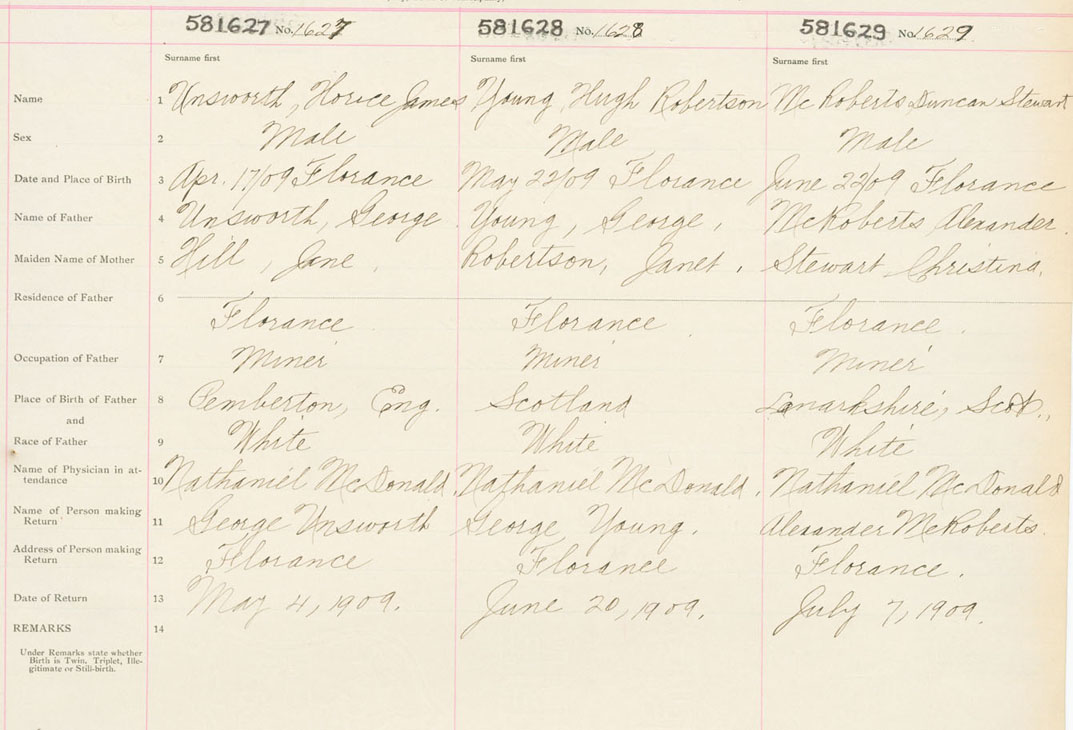 581627 No. 1627 581628 No. 1628 581629 No. 1629
Surname first Surname first Surname first
Name 1 Unsworth, Horice James Young, Hugh Robertson McRoberts Duncan Stewart
Sex 2 Male Male Male
Date and Place of Birth 3 Apr. 17/09 Florance May 22/09 Florance June 22/09 Florance
Name of Father 4 Unsworth, George Young, George, McRoberts Alexander.
Maiden Name of Mother 5 Hill, Jane, Robertson, Janet, Stewart Christina,
Residence of Father 6
Florance Florance Florance.
Occupation of Father 7 Miner Miner Miner
Place of Birth of Father 8 Pemberton, Eng. Scotland Lanarkshire, Scot.,
and
Race of Father 9 White White White
Name of Physician in at-
tendance 10 Nathaniel McDonald, Nathaniel McDonald, Nathaniel McDonald
Name of Person making
Return 11 George Unsworth George Young. Alexander McRoberts.
Address of Person making
Return 12 Florance Florance Florance.
Date of Return 13 May 4, 1909. June 20, 1909. July 7, 1909.
REMARKS 14
Under Remarks state whether
Birth is Twin, Triplet, Ille-
gitimate or Still-birth.